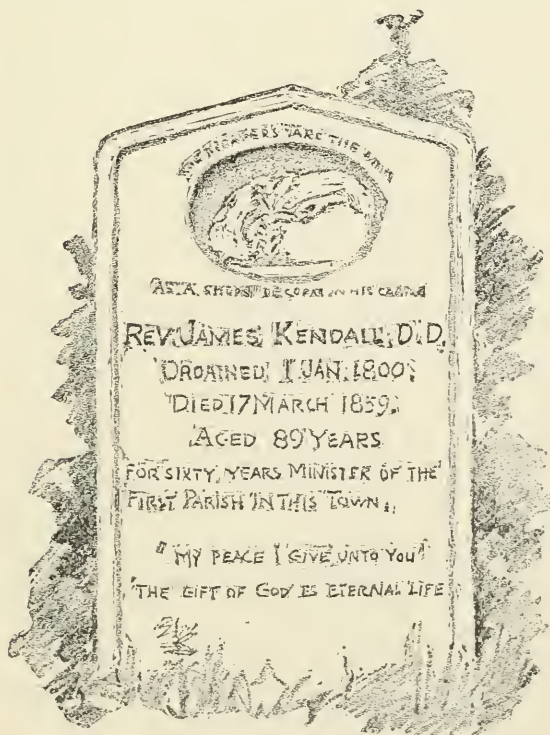 THE REAPERS ARE THE
AS A SHOCK OF CORN IN HIS
REV. JAMES KENDALL, D.D.
ORDAINED 1 JAN. 1800.
DIED 17 MARCH 1859.
AGED 89 YEARS
FOR SIXTY YEARS MINISTER OF THE
FIRST PARISH IN THIS TOWN.
"MY PEACE I GIVE UNTO YOU"
"THE GIFT OF GOD IS ETERNAL LIFE